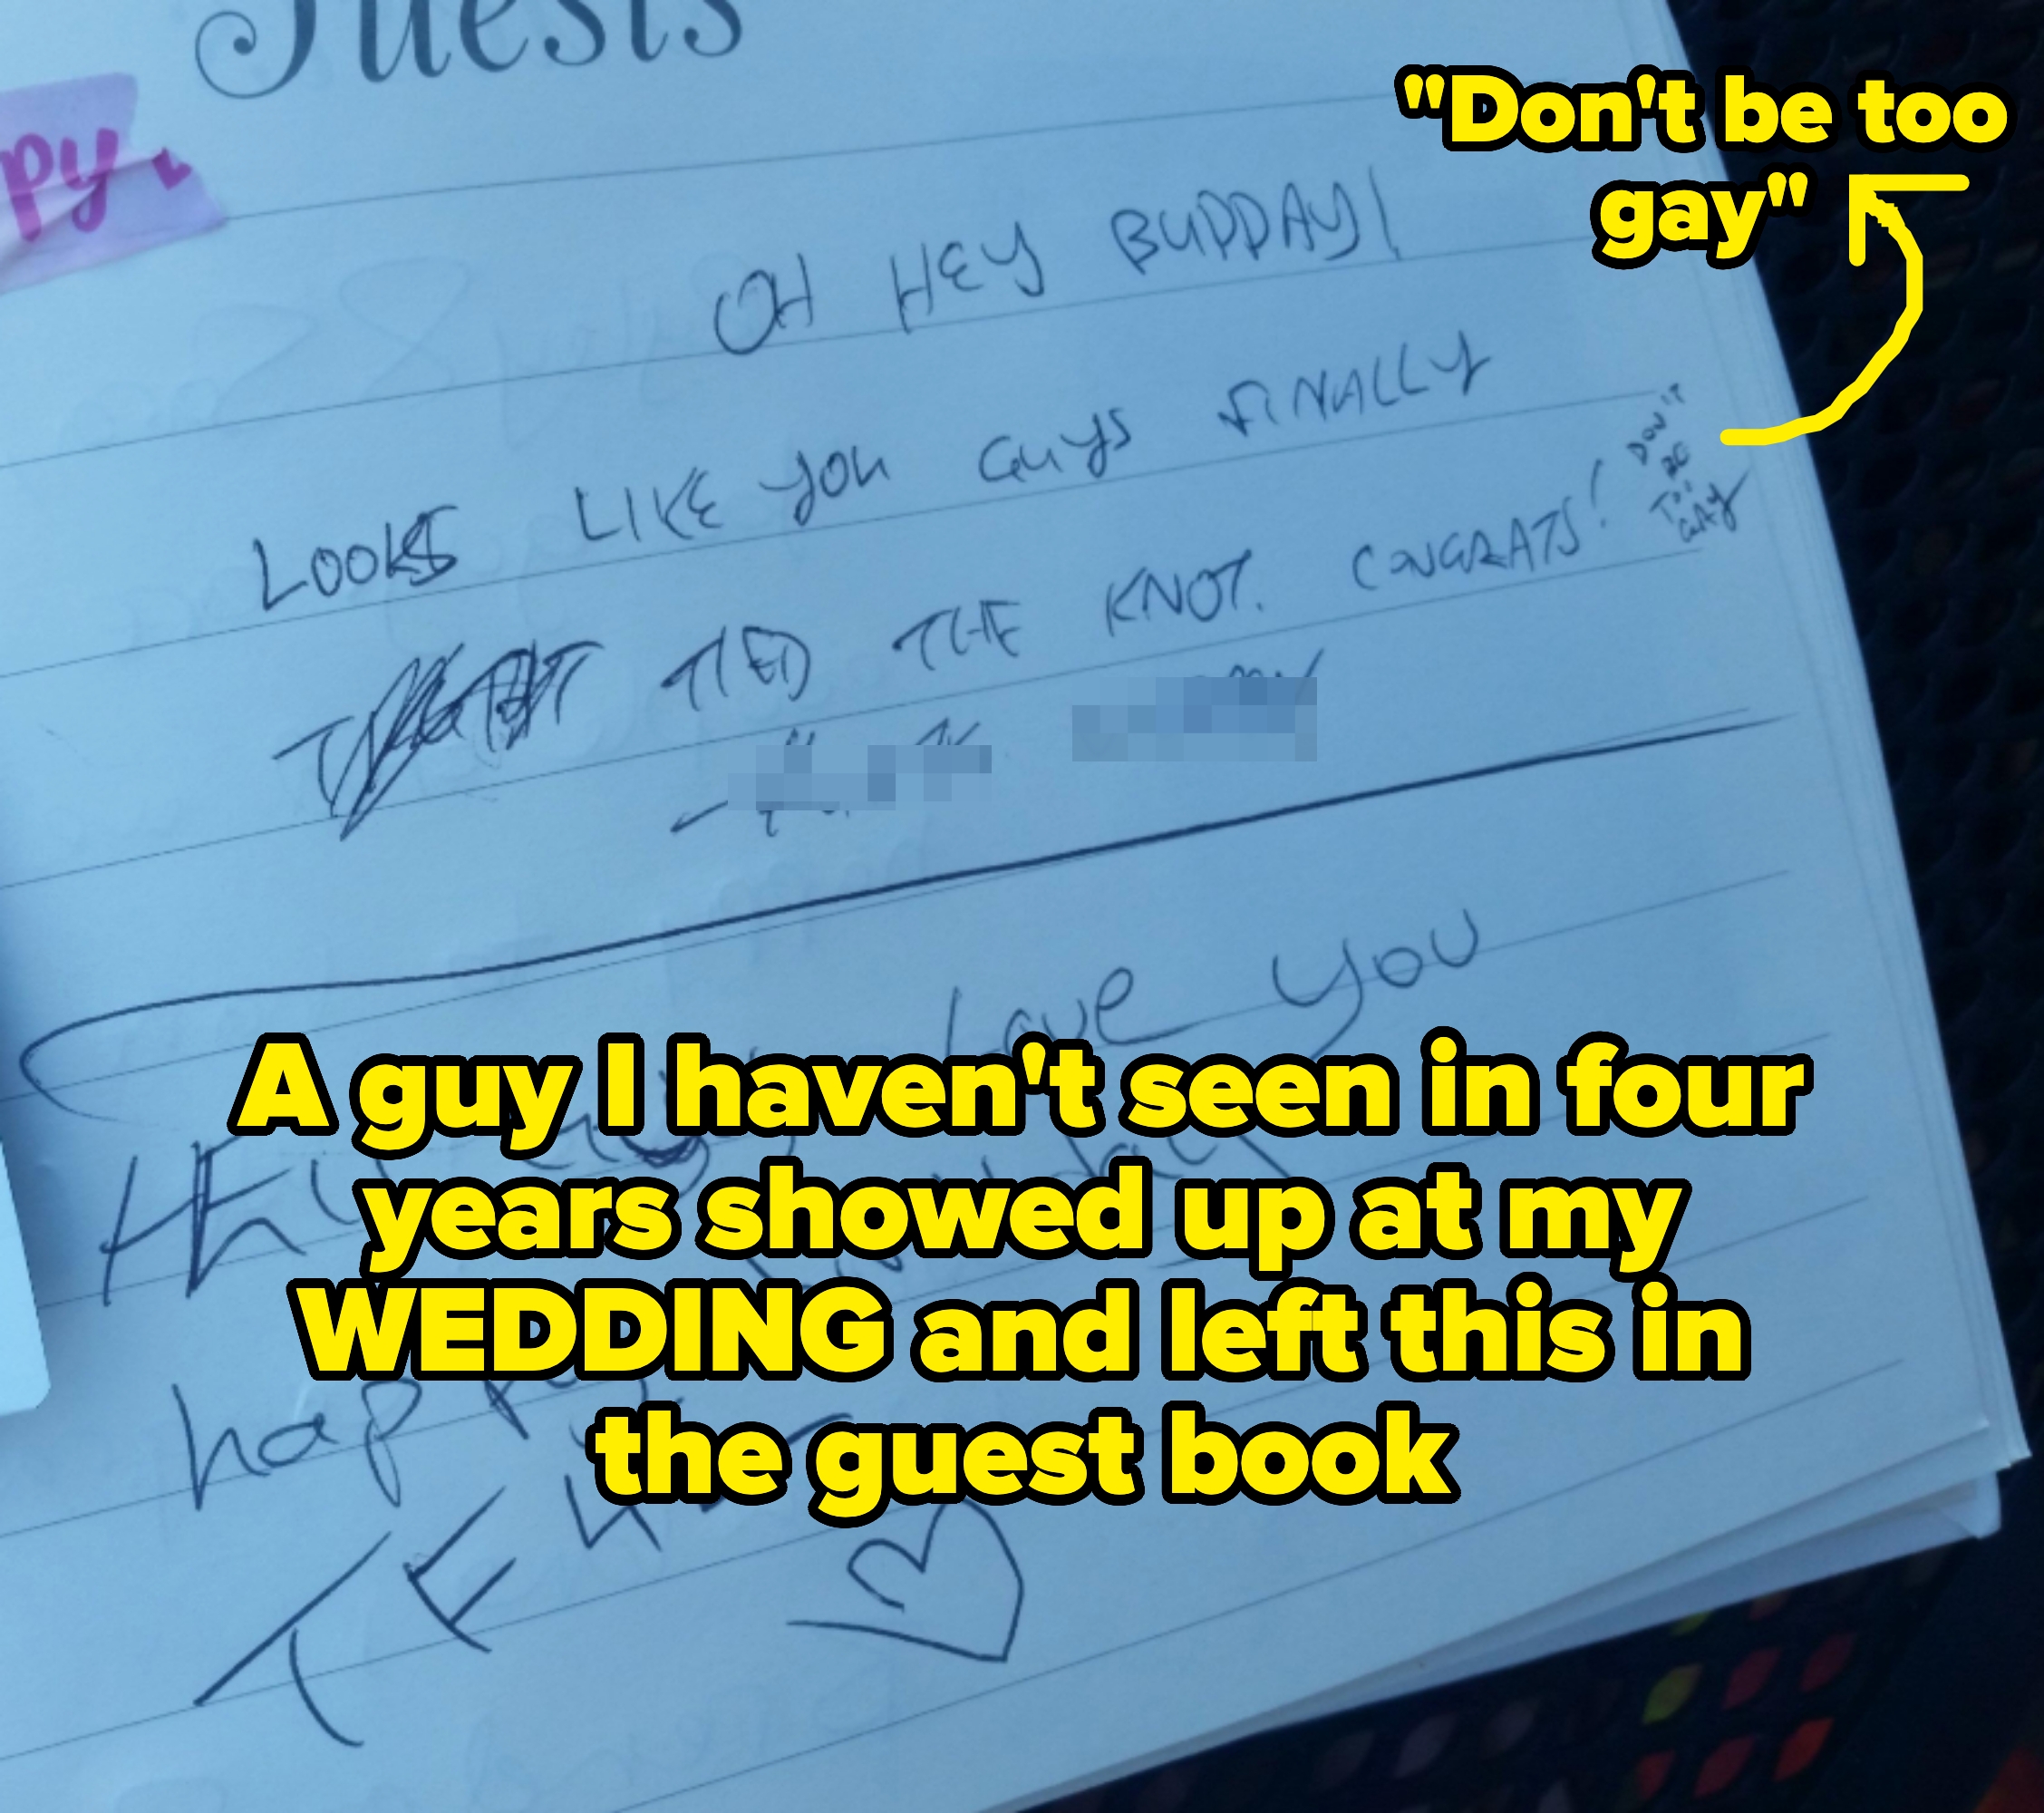 Guests
py
"Don't be too
gay"
OH HEY BUDDAY!
LOOKS LIKE YOU GUYS FINALLY
TIED THE KNOT. CONGRATS!
DON'T
BE
TOO
GAY
Love you
A guy I haven't seen in four
years showed up at my
WEDDING and left this in
the guest book